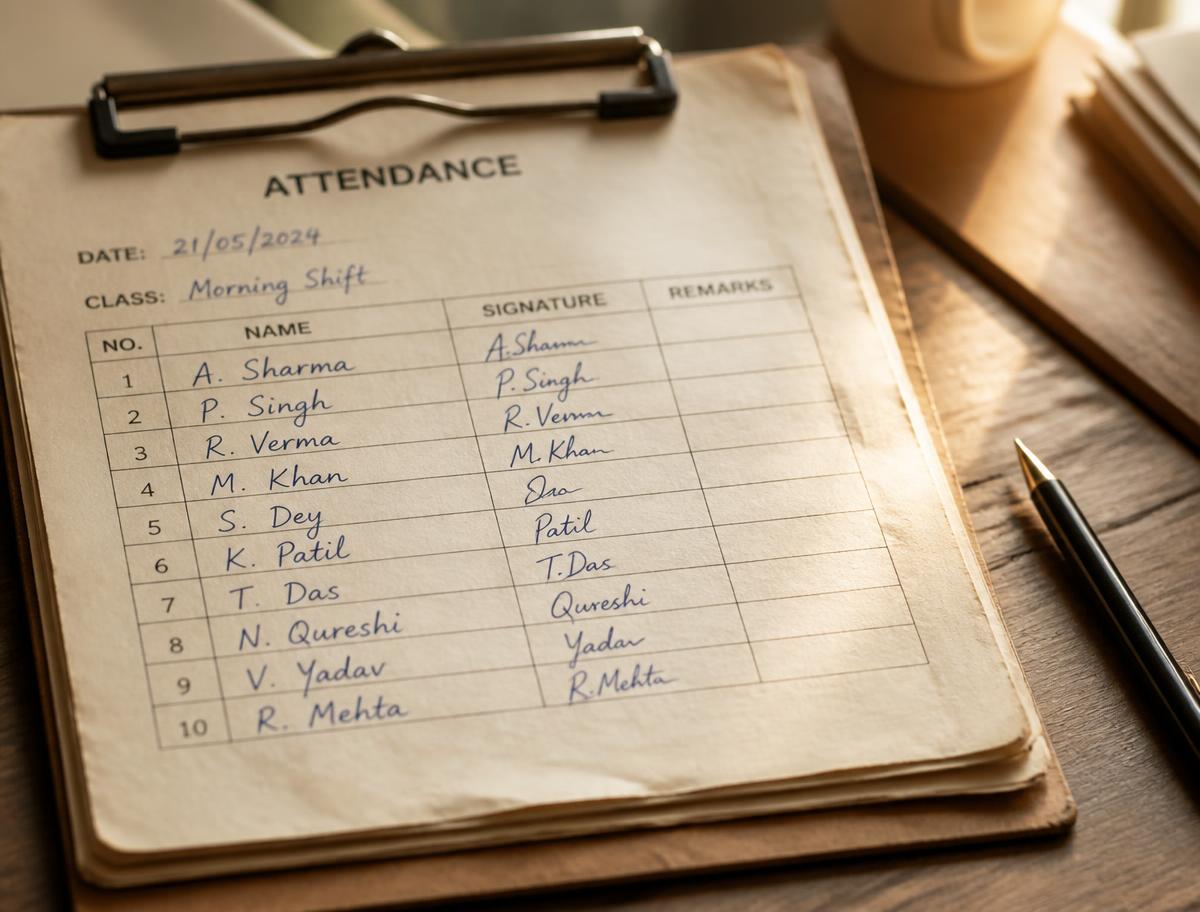 ATTENDANCE
DATE: 21/05/2024
CLASS: Morning Shift
NO. NAME SIGNATURE REMARKS
1 A. Sharma A.Sharma
2 P. Singh P.Singh
3 R. Verma R.Verma
4 M. Khan M.Khan
5 S. Dey
6 K. Patil Patil
7 T. Das T.Das
8 N. Qureshi Qureshi
9 V. Yadav Yadav
10 R. Mehta R.Mehta